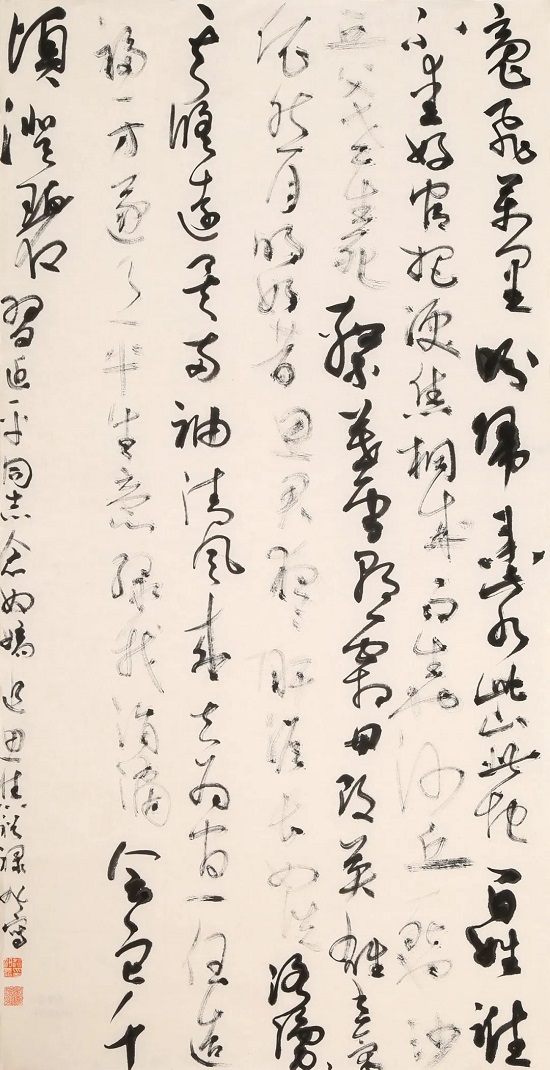 魂飛萬里盼歸來此水此山此地百姓誰
不愛好官把淚焦桐成雨生也沙丘死也沙
丘父老生死繫暮雪朝霜毋改英雄意氣
依然月明如昔思君夜夜肝膽長如洗路漫漫
其修遠矣兩袖清風來去為官一任造
福一方遂了平生意綠我涓滴會它千
頃澄碧 習近平同志念奴嬌追思焦裕祿